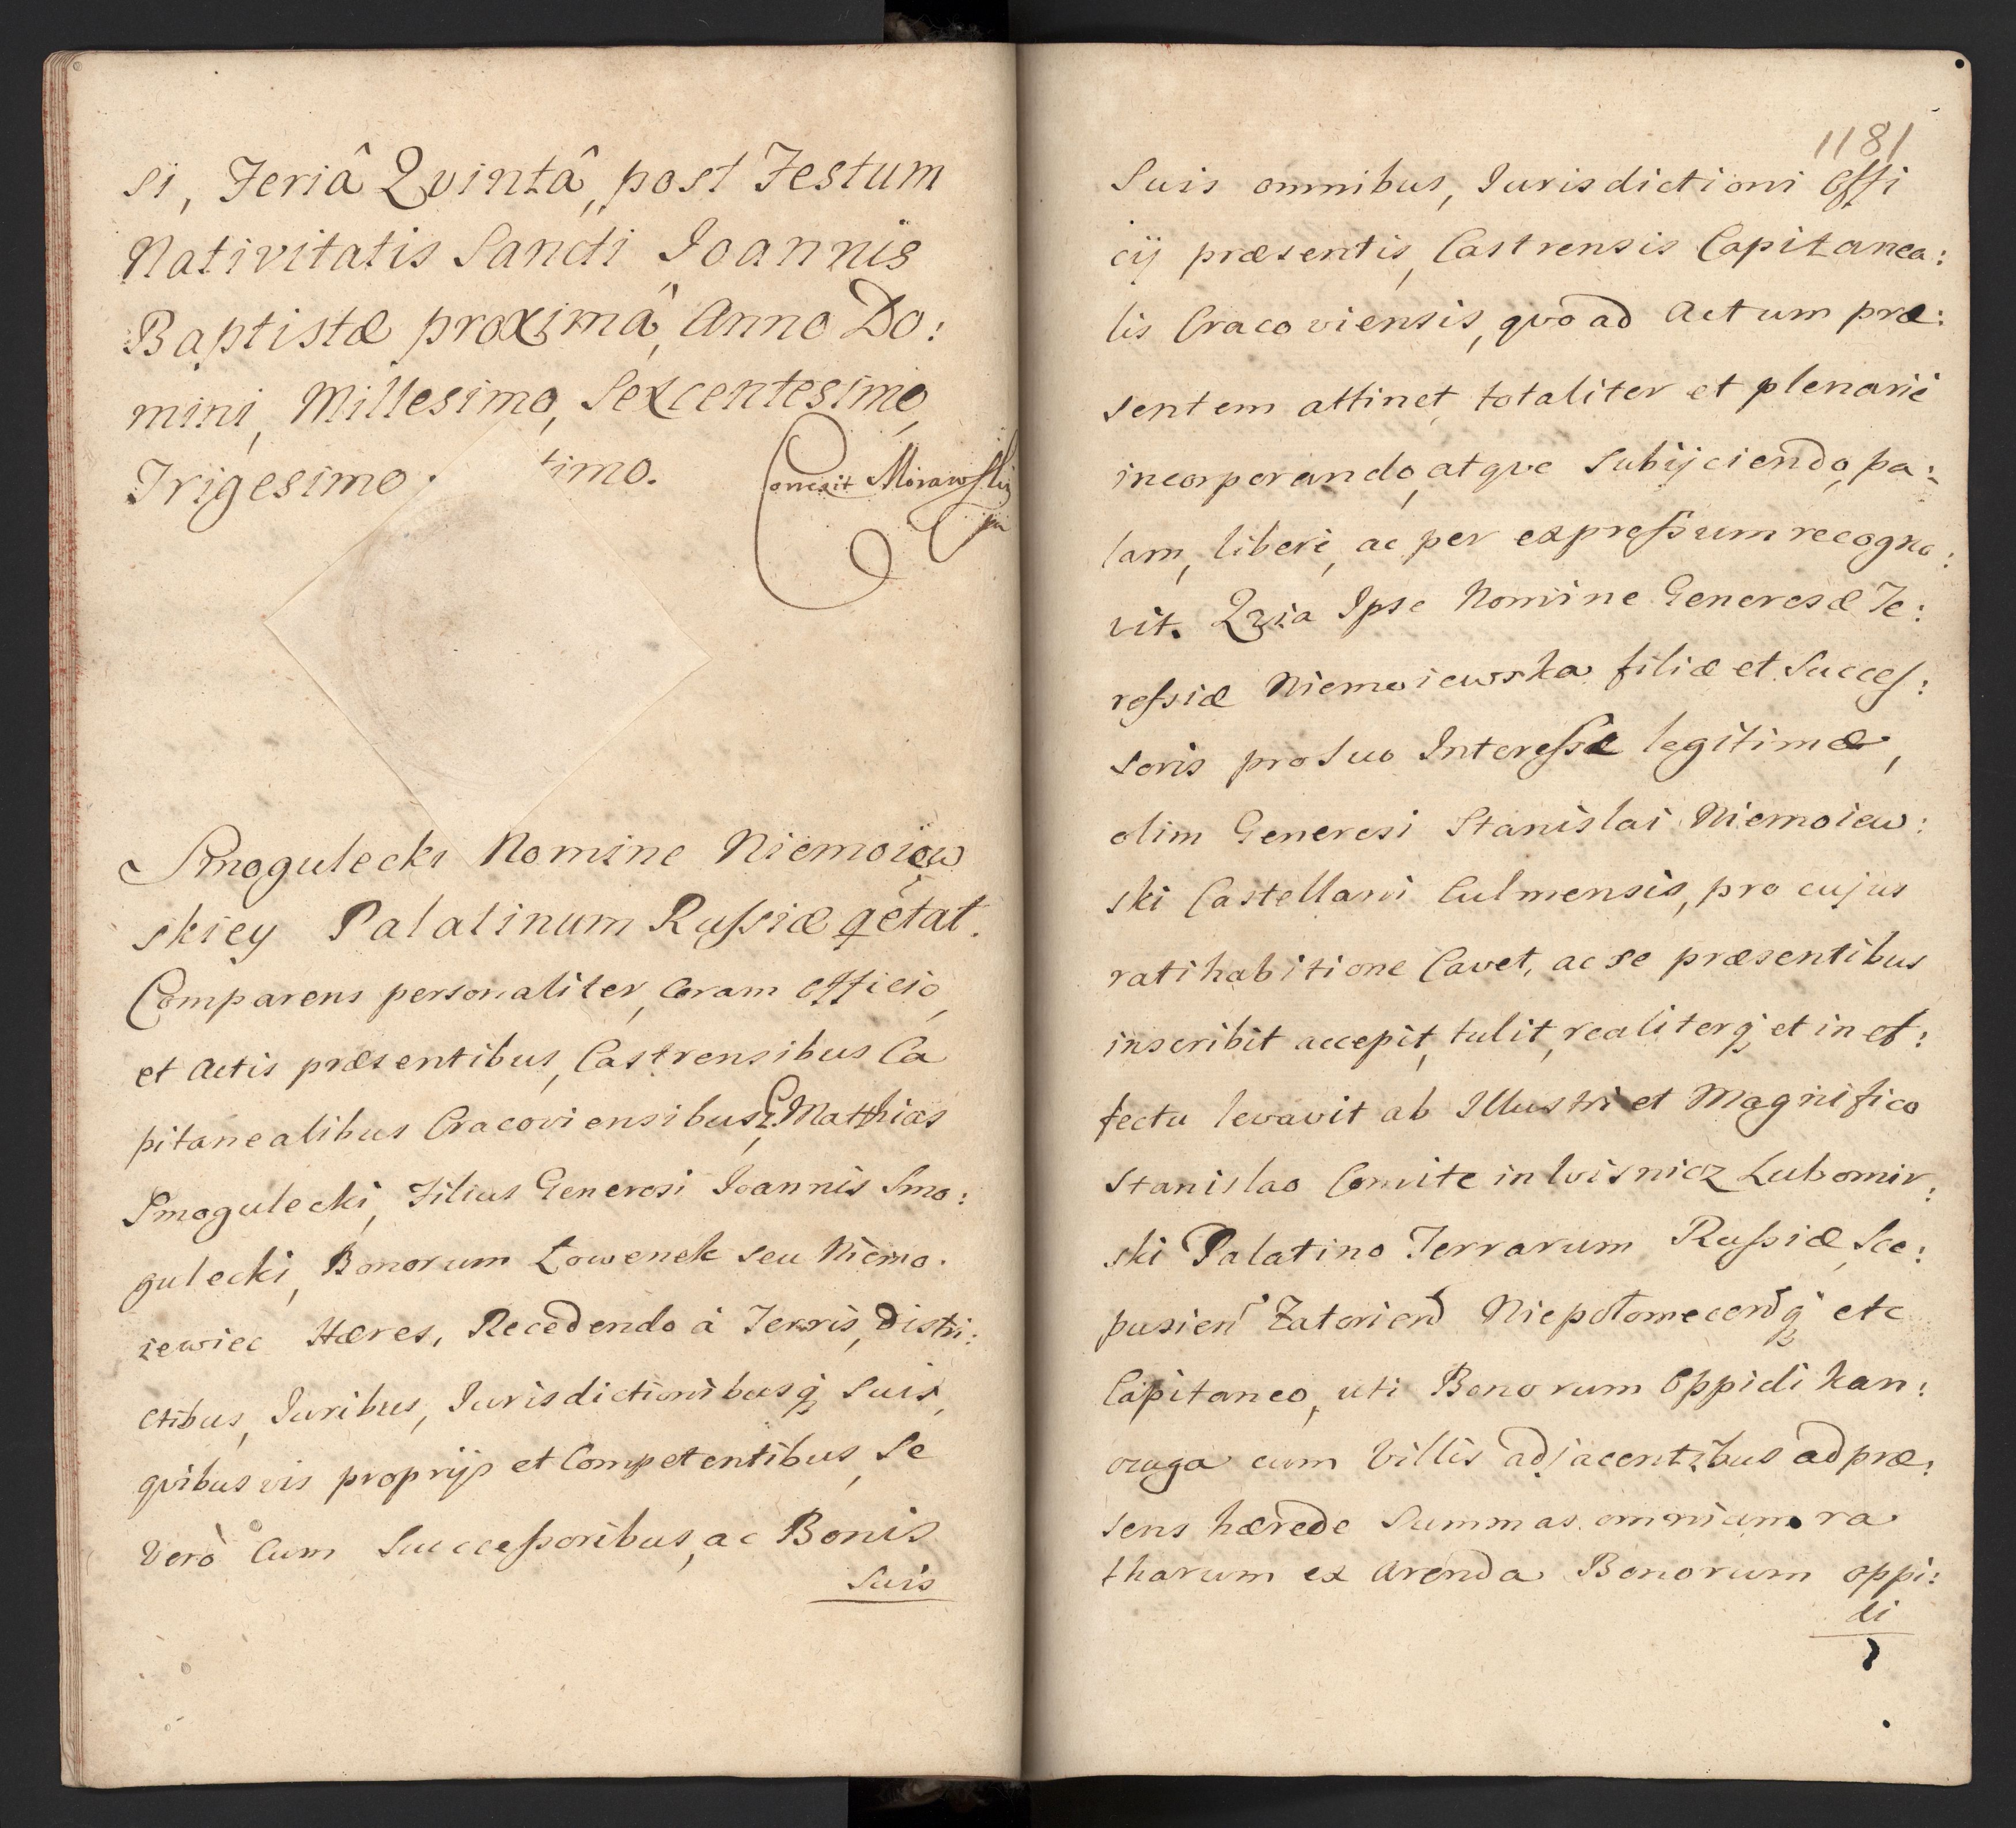 si, Feriâ Qvintâ, post Festum
Nativitatis Sancti Joannis
Baptistæ proximâ, Anno Do:
mini, Millesimo, Sexcentesimo,
Trigesimo timo.
Correxit Morawski
Smogulecki Nomine Niemoiew
skiey Palatinum Russiæ qetat.
Comparens personaliter, Coram Officio,
et Actis præsentibus, Castrensibus Ca
pitanealibus Cracoviensibus, G. Matthias
Smogulecki, Filius Generosi Joannis Smo:
gulecki, Bonorum Łowenek seu Niemo.
iewiec Hæres, Recedendo á Terris, Distri:
ctibus, Juribus, Jurisdictionibusq; suis,
qvibusvis proprijs et Competentibus, Se
Verò Cum Successoribus, ac Bonis
Suis
1181
Suis omnibus, Jurisdictioni Offi
cij præsentis, Castrensis Capitanea:
lis Cracoviensis, qvo ad Actum præ:
sentem attinet, totaliter et plenarié
incorporando, atqve Subijciendo, pa:
lam, liberè, ac per expressum recogno:
vit. Qvia Ipse Nomine Generosæ Te:
ressiæ Niemoiewska filiæ et Succes:
soris pro Suo Interesse legitimæ,
olim Generosi Stanislai Niemoiew:
ski Castellani Culmensis, pro cujus
ratihabitione Cavet, ac se præsentibus
inscribit accepit, tulit, realiterq; et in ef:
fectu levavit ab Illustri et Magnifico
Stanislao Comite in Wisnicz Lubomir:
ski Palatino Terrarum Russiæ, Sce:
pusien Zatorien Niepołomecenq; etc
Capitaneo, uti Bonorum Oppidi Kan:
czuga cum Villis adjacentibus ad præ:
sens hærede Summas omnium ra
tharum ex Arenda Bonorum oppi:
di